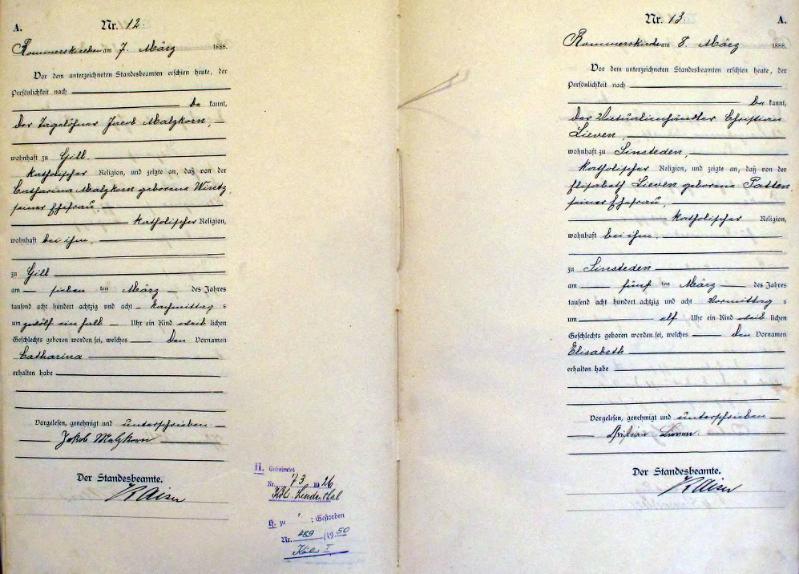 A.
Nr. 12
Rommerskirchen am 7. März 1888.
Vor dem unterzeichneten Standesbeamten erschien heute, der
Persönlichkeit nach
be kannt,
der Tagelöhner Jacob Malzkorn,
wohnhaft zu Gill
katholischer Religion, und zeigte an, daß von der
Catharina Malzkorn geborene Wintz
seiner Ehefrau,
katholischer Religion,
wohnhaft bei ihm,
zu Gill
am sieben ten März des Jahres
tausend acht hundert achtzig und acht Nachmittag s
um zwölf ein halb Uhr ein Kind weib lichen
Geschlechts geboren worden sei, welches den Vornamen
Catharina
erhalten habe
Vorgelesen, genehmigt und unterschrieben
Jakob Malzkorn
Der Standesbeamte.
Kaiser
II. Geheiratet
Nr. 73 1926
Köln Lindenthal
Gestorben
Nr. 289 /1950
Köln I
Nr. 13
A.
Rommerskirchen am 8. März 1888.
Vor dem unterzeichneten Standesbeamten erschien heute, der
Persönlichkeit nach
be kannt,
der Victualienhändler Christian
Lieven,
wohnhaft zu Sinsteden,
katholischer Religion, und zeigte an, daß von der
Elisabeth Lieven geborene Patten
seiner Ehefrau,
katholischer Religion,
wohnhaft bei ihm,
zu Sinsteden
am fünf ten März des Jahres
tausend acht hundert achtzig und acht Vormittag s
um elf Uhr ein Kind weib lichen
Geschlechts geboren worden sei, welches den Vornamen
Elisabeth
erhalten habe
Vorgelesen, genehmigt und unterschrieben
Lieven
Der Standesbeamte.
Kaiser